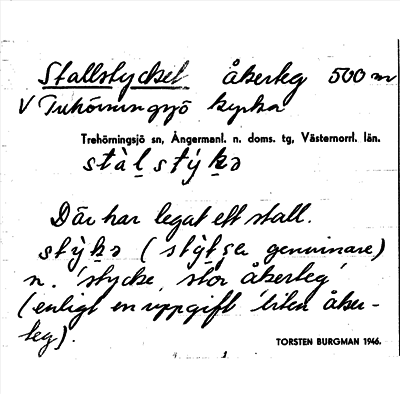 Stallstycket åkerteg 500 m
V Trehörningsjö kyrka
Trehörningsjö sn, Ångermanl. n. doms. tg, Västernorrl. län.
stàḷ stýk̠ə
Där har legat ett stall.
stỳk̠ə ( genuinare)
n. 'stycke, stor åkerteg'
(enligt en uppgift 'liten åker-
teg).
TORSTEN BURGMAN 1946.